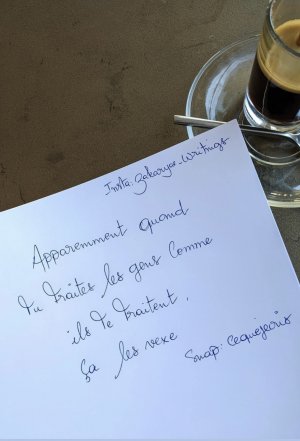 Insta: zakarya_writings
Apparemment quand
tu traites les gens comme
ils te traitent,
ça les vexe
Snap: cequejecris